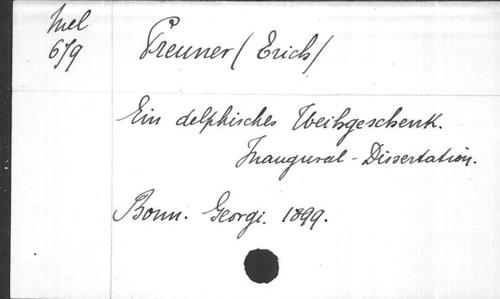 Mel
679
Preuner (Erich)
Ein delphisches Weihgeschenk.
Inaugural-Dissertation.
Bonn. Georgi. 1899.